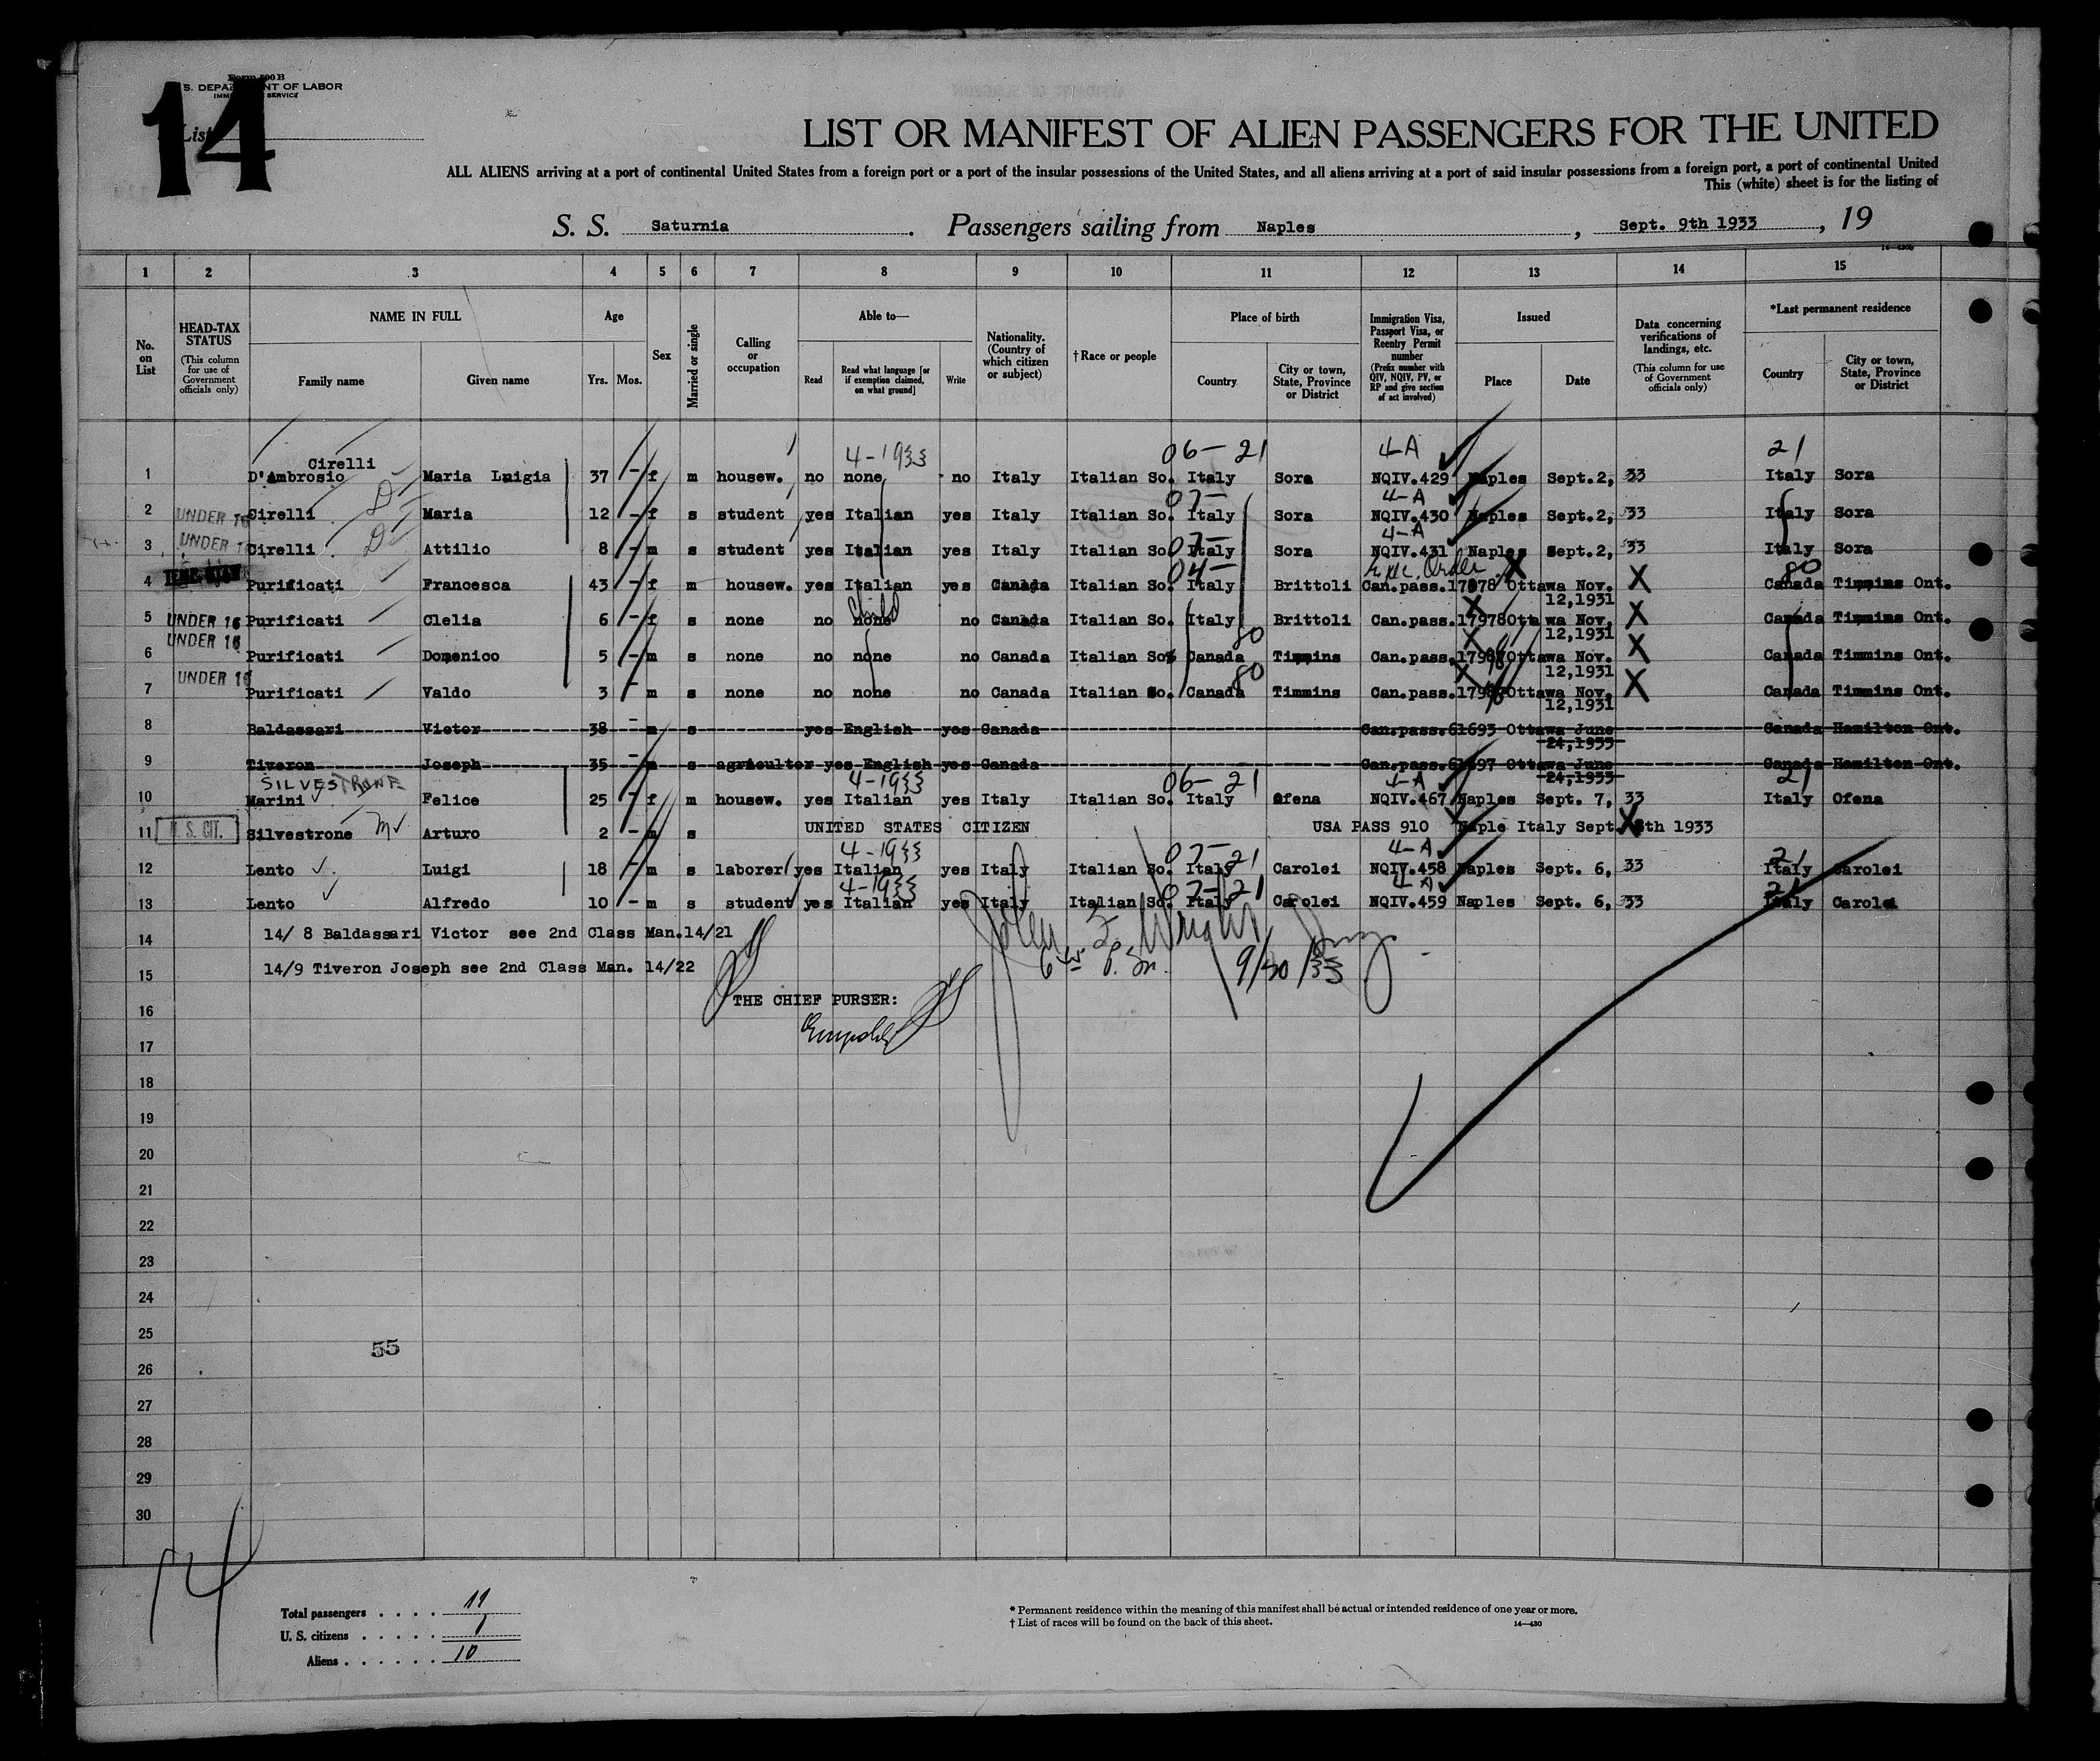 14
Form 500 B
U.S. DEPARTMENT OF LABOR
IMMIGRATION SERVICE
List
LIST OR MANIFEST OF ALIEN PASSENGERS FOR THE UNITED
ALL ALIENS arriving at a port of continental United States from a foreign port or a port of the insular possessions of the United States, and all aliens arriving at a port of said insular possessions from a foreign port, a port of continental United
This (white) sheet is for the listing of
S. S. Saturnia. Passengers sailing from Naples, Sept. 9th 1933, 19
1 2 3 4 5 6 7 8 9 10 11 12 13 14 15
No. on List
HEAD-TAX STATUS (This column for use of Government officials only)
NAME IN FULL Family name Given name
Age Yrs. Mos.
Sex
Married or single
Calling or occupation
Able to— Read Read what language [or if exemption claimed, on what ground] Write
Nationality. (Country of which citizen or subject)
† Race or people
Place of birth Country City or town, State, Province or District
Immigration Visa, Passport Visa, or Reentry Permit number (Prefix number with QIV, NQIV, PV, or RP and give section of act involved)
Issued Place Date
Data concerning verifications of landings, etc. (This column for use of Government officials only)
*Last permanent residence Country City or town, State, Province or District
Cirelli 4-1933 06-21 4-A 21
1 D'Ambrosio Maria Luigia 37 - f m housew. no none no Italy Italian So. Italy Sora NQIV.429 Naples Sept.2, 33 Italy Sora
07- 4-A
2 UNDER 16 Cirelli Maria 12 - f s student yes Italian yes Italy Italian So. Italy Sora NQIV.430 Naples Sept.2, 33 Italy Sora
07- 4-A
3 UNDER 1 Cirelli Attilio 8 - m s student yes Italian yes Italy Italian So. Italy Sora NQIV.431 Naples Sept.2, 33 Italy Sora
04- Order 80
4 Purificati Francesca 43 - f m housew. yes Italian yes Canada Italian So. Italy Brittoli Can.pass.17978 Ottawa Nov. 12,1931 X Canada Timmins Ont.
Child
5 UNDER 16 Purificati Clelia 6 - f s none no none no Canada Italian So. Italy Brittoli Can.pass.17978 Ottawa Nov. 12,1931 X Canada Timmins Ont.
80
6 UNDER 16 Purificati Domenico 5 - m s none no none no Canada Italian So. Canada Timmins Can.pass. Ottawa Nov. 12,1931 X Canada Timmins Ont.
80
7 UNDER 16 Purificati Valdo 3 - m s none no none no Canada Italian So. Canada Timmins Can.pass. Ottawa Nov. 12,1931 X Canada Timmins Ont.
8 Baldassari Victor 38 - m s yes English yes Canada Can.pass.61693 Ottawa June 24,1933 Canada Hamilton Ont.
9 Tiveron Joseph 35 - m s agricultor yes English yes Canada Can.pass. Ottawa June 24,1933 Canada Hamilton Ont.
SILVESTRONE 4-1933 06-21 4-A 21
10 Marini Felice 25 - f m housew. yes Italian yes Italy Italian So. Italy Ofena NQIV.467 Naples Sept. 7, 33 Italy Ofena
11 U. S. CIT. Silvestrone Arturo 2 - m s UNITED STATES CITIZEN USA PASS 910 Naple Italy Sept. 8th 1933
4-1933 07-21 4-A 21
12 Lento Luigi 18 - m s laborer yes Italian yes Italy Italian So. Italy Carolei NQIV.458 Naples Sept. 6, 33 Italy Carolei
4-1933 07-21 4-A 21
13 Lento Alfredo 10 - m s student yes Italian yes Italy Italian So. Italy Carolei NQIV.459 Naples Sept. 6, 33 Italy Carolei
14 14/ 8 Baldassari Victor see 2nd Class Man.14/21
15 14/9 Tiveron Joseph see 2nd Class Man. 14/22
9/30/33
16 THE CHIEF PURSER:
17
18
19
20
21
22
23
24
25
55
26
27
28
29
30
14
Total passengers . . . . 11
U. S. citizens . . . . . 1
Aliens . . . . . . 10
* Permanent residence within the meaning of this manifest shall be actual or intended residence of one year or more.
† List of races will be found on the back of this sheet. 14—430